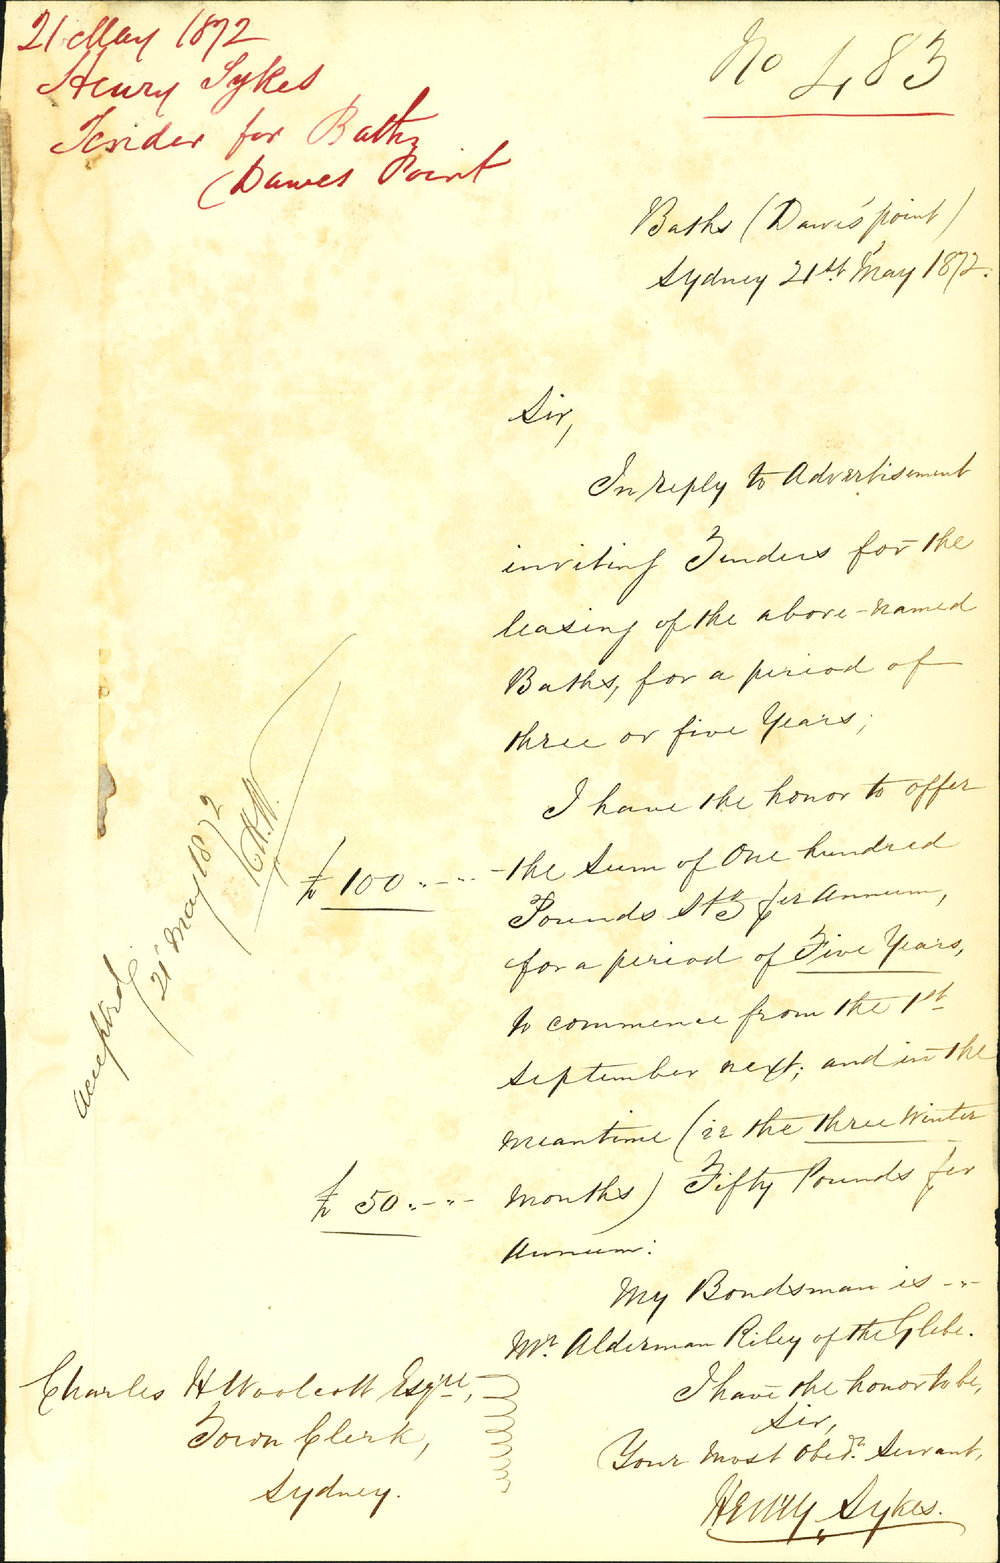 21 May 1872
Henry Sykes
Tender for Baths
(Dawes Point
No 483
Baths (Dawes' point)
Sydney 21st May 1872.
Sir,
In reply to Advertisement
inviting Tenders for the
leasing of the above-named
Baths, for a period of
three or five Years;
I have the honor to offer
£100 .-.-. - the Sum of One hundred
Pounds Stg per Annum,
for a period of Five Years,
to commence from the 1st
September next; and in the
meantime (ie the three Winter
£50 .-.- months) Fifty Pounds per
Annum:
My Bondsman is -.-
Mr. Alderman Riley of the Glebe.
I have the honor to be,
Sir,
Your Most Obedt. Servant,
Henry Sykes.
Charles H Woolcott Esqre,
Town Clerk,
Sydney.
Accepted
21 May 1872
C.H.W.